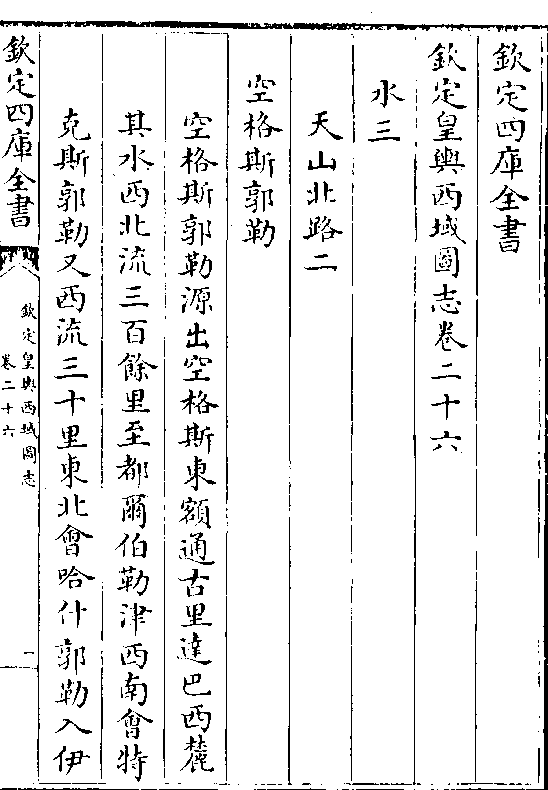 欽定四庫全書
欽定皇輿西域圖志卷二十六
水三
天山北路二
空格斯郭勒
空格斯郭勒源出空格斯東額通古里達巴西麓
其水西北流三百餘里至都爾伯勒津西南會特
克斯郭勒又西流三十里東北會哈什郭勒入伊
欽定四庫全書
欽定皇輿西域圖志
卷二十六
一